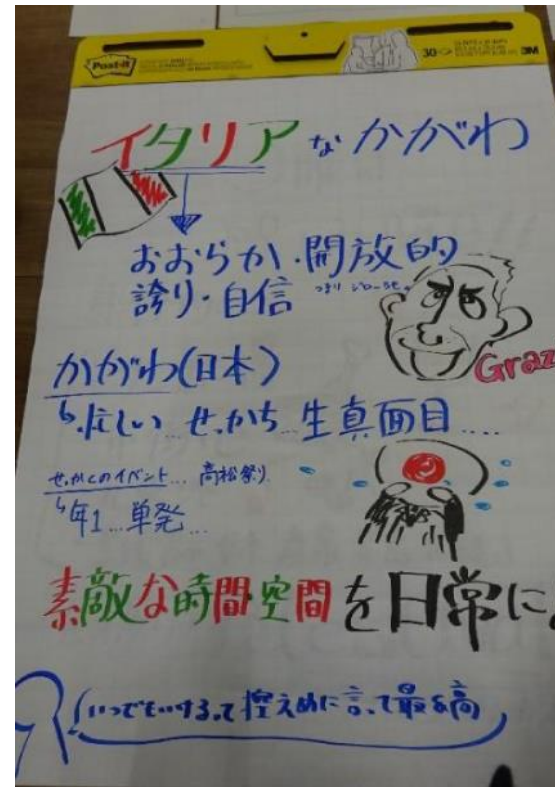 Post-it
30
3M
イタリアなかがわ
おおらか・開放的
誇り・自信
つまり ジローラモ
Graz
かがわ(日本)
↳忙しい…せっかち…生真面目….
せっかくのイベント…高松祭り
↳年1…単発…
素敵な時間・空間を日常に。
いつでもいけるって控えめに言って最&高